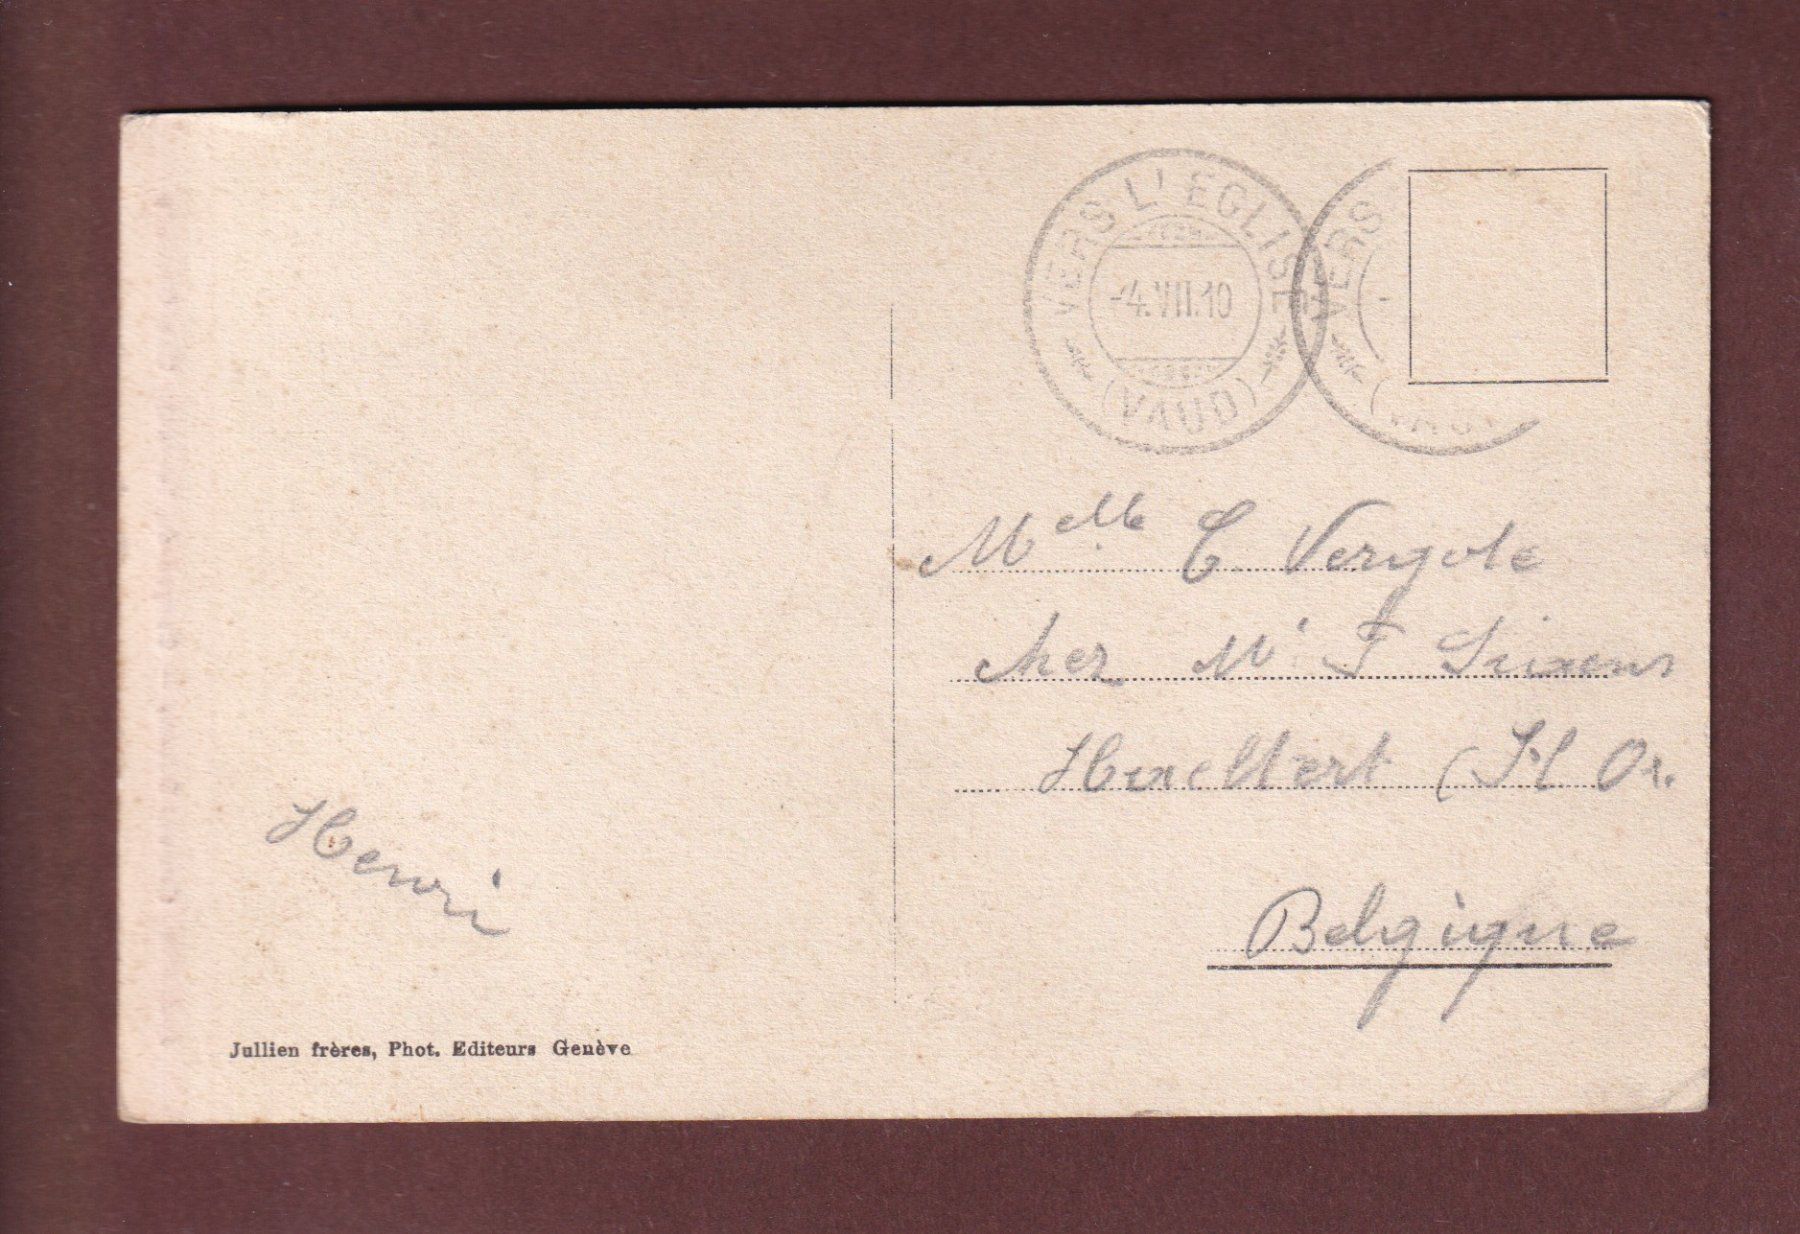 VERS L'EGLISE
-4.VII.10
(VAUD)
VERS
Melle C. Vergote
chez Mr F
(Fl Or.
Belgique
Henri
Jullien frères, Phot. Editeurs Genève